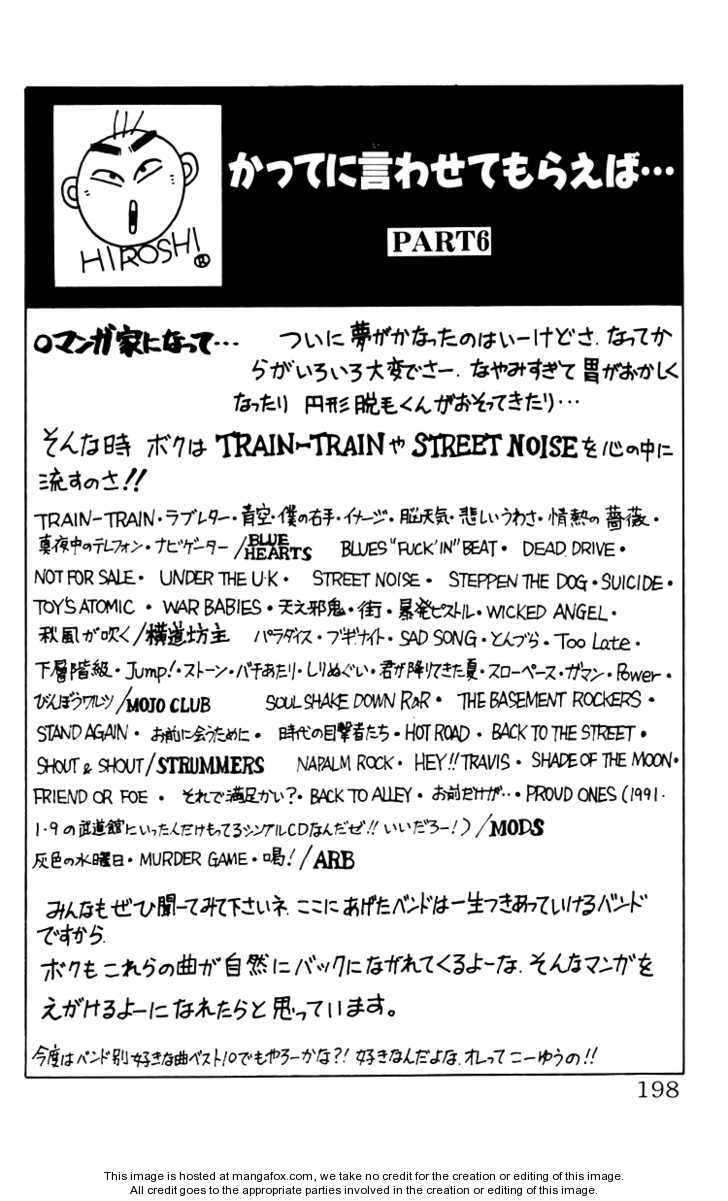 HIROSHI ®
かってに言わせてもらえば…
PART6
○マンガ家になって… ついに夢がかなったのはいーけどさ. なってか
らがいろいろ大変でさー. なやみすぎて胃がおかしく
なったり 円形脱毛くんがおそってきたり…
そんな時 ボクは TRAIN-TRAINや STREET NOISEを心の中に
流すのさ!!
TRAIN-TRAIN・ラブレター・青空・僕の右手・イメージ・脳天気・悲しいうわさ・情熱の薔薇・
真夜中のテレフォン・ナビゲーター/BLUE HEARTS BLUES "FUCK'IN" BEAT・ DEAD DRIVE・
NOT FOR SALE・ UNDER THE U・K・ STREET NOISE・ STEPPEN THE DOG・SUICIDE・
TOY'S ATOMIC ・ WAR BABIES・天之邪鬼・街・暴発ピストル・WICKED ANGEL・
秋風が吹く/横道坊主 パラダイス・ブギナイト・SAD SONG・とんづら・Too Late・
下層階級・Jump!・ストーン・バチあたり・しりぬぐい・君が降りてきた夏・スローペース・ガマン・Power・
びんぼうワルツ/MOJO CLUB SOUL SHAKE DOWN R&R・ THE BASEMENT ROCKERS・
STAND AGAIN・ お前に会うために・ 時代の目撃者たち・HOT ROAD・ BACK TO THE STREET・
SHOUT & SHOUT/STRUMMERS NAPALM ROCK・ HEY!! TRAVIS・ SHADE OF THE MOON・
FRIEND OR FOE ・ それで満足かい?・BACK TO ALLEY・ お前だけが…・PROUD ONES (1991.
1・9の武道館にいった人だけもってるシングルCDなんだぜ!! いいだろー!)/MODS
灰色の水曜日・MURDER GAME・喝!/ARB
みんなもぜひ聞ーてみて下さいネ. ここにあげたバンドは一生つきあっていけるバンド
ですから.
ボクもこれらの曲が自然にバックにながれてくるよーな. そんなマンガを
えがけるよーになれたらと思っています。
今度はバンド別好きな曲ベスト10でもやろーかな?! 好きなんだよな. オレってこーゆうの!!
198
This image is hosted at mangafox.com, we take no credit for the creation or editing of this image.
All credit goes to the appropriate parties involved in the creation or editing of this image.